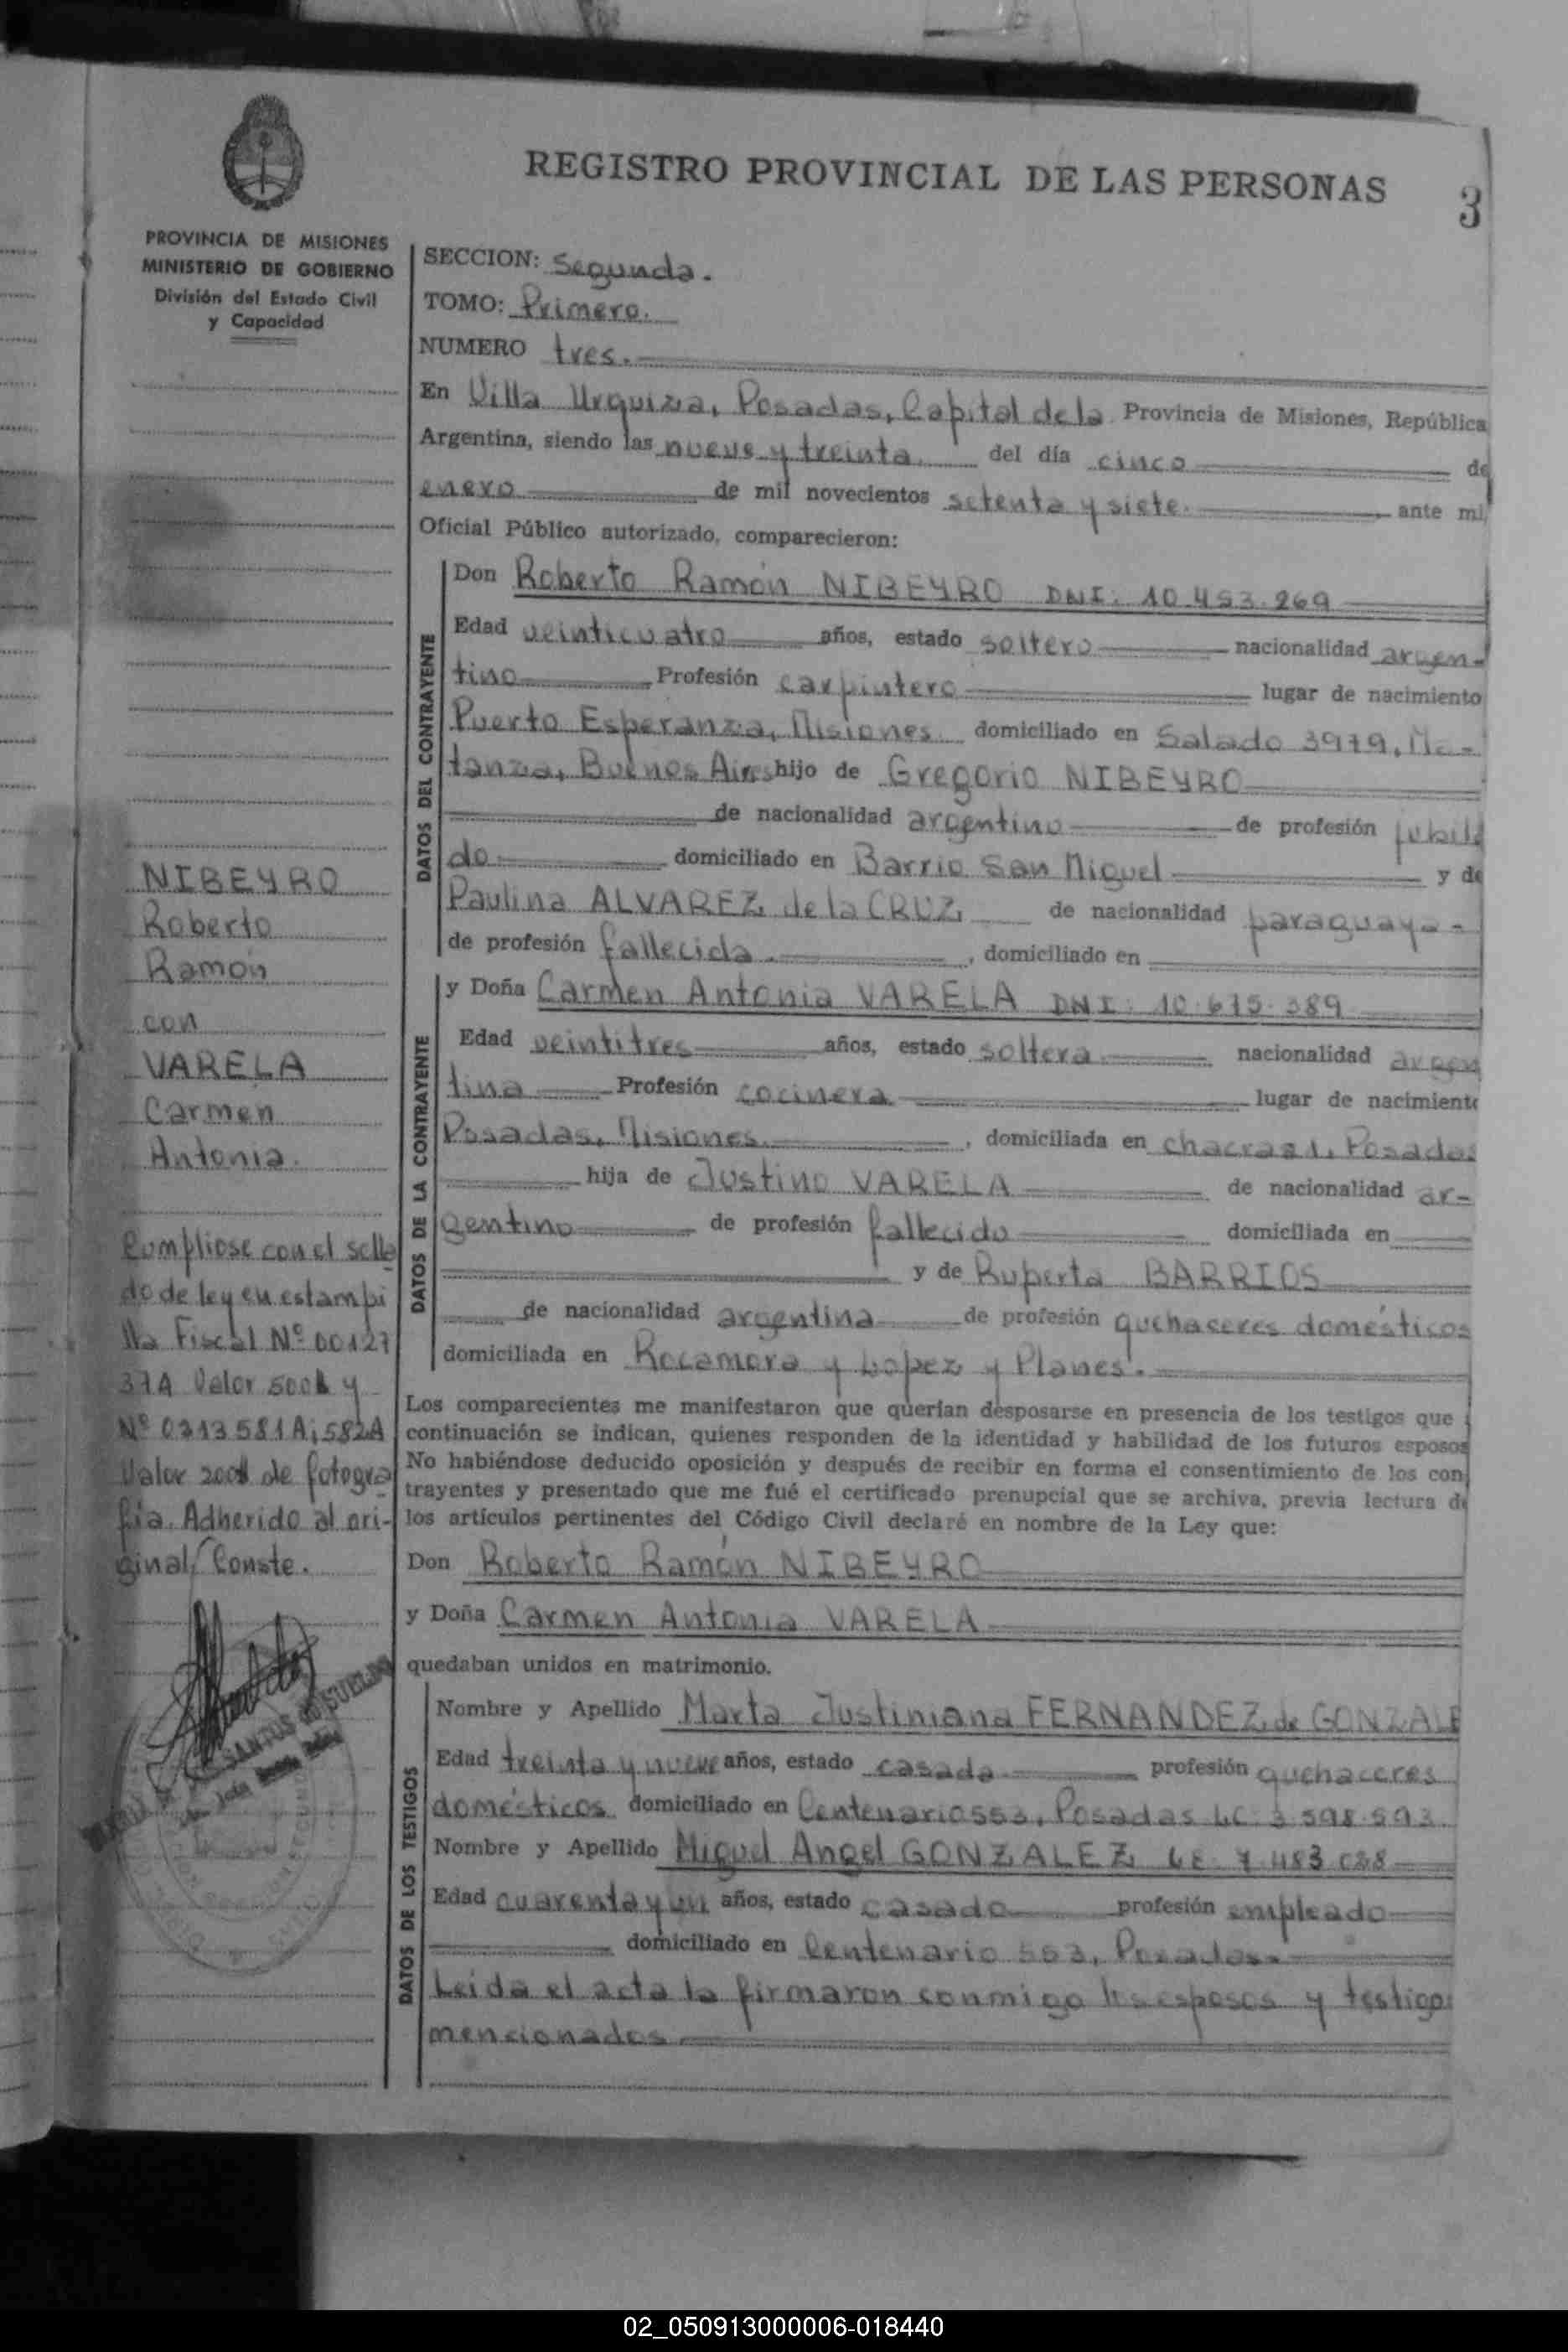 REGISTRO PROVINCIAL DE LAS PERSONAS
3
PROVINCIA DE MISIONES
MINISTERIO DE GOBIERNO
División del Estado Civil
y Capacidad
SECCION: Segunda.
TOMO: Primero.
NUMERO tres.
En Villa Urquiza, Posadas, Capital de la Provincia de Misiones, República
Argentina, siendo las nueve y treinta. del día cinco de
enero de mil novecientos setenta y siete. ante mi,
Oficial Público autorizado, comparecieron:
DATOS DEL CONTRAYENTE
Don Roberto Ramón NIBEYRO DNI: 10.453.269
Edad veinticuatro años, estado soltero nacionalidad argen-
tino Profesión carpintero lugar de nacimiento
Puerto Esperanza, Misiones domiciliado en Salado 3979, Ma-
tanza, Buenos Aires hijo de Gregorio NIBEYRO
de nacionalidad argentino de profesión jubila
do domiciliado en Barrio San Miguel y de
Paulina ALVAREZ de la CRUZ, de nacionalidad paraguaya-
de profesión fallecida. , domiciliado en
DATOS DE LA CONTRAYENTE
y Doña Carmen Antonia VARELA DNI: 10.675.389
Edad veintitres años, estado soltera nacionalidad argen
tina Profesión cocinera lugar de nacimiento
Posadas, Misiones. , domiciliada en Posadas
hija de Justino VARELA de nacionalidad ar-
gentino de profesión fallecido domiciliada en
y de Ruperta BARRIOS
de nacionalidad argentina de profesión quehaceres domésticos
domiciliada en Rocamora y Lopez y Planes.
Los comparecientes me manifestaron que querían desposarse en presencia de los testigos que
continuación se indican, quienes responden de la identidad y habilidad de los futuros esposos
No habiéndose deducido oposición y después de recibir en forma el consentimiento de los con
trayentes y presentado que me fué el certificado prenupcial que se archiva, previa lectura de
los artículos pertinentes del Código Civil declaré en nombre de la Ley que:
Don Roberto Ramón NIBEYRO
y Doña Carmen Antonia VARELA
quedaban unidos en matrimonio.
DATOS DE LOS TESTIGOS
Nombre y Apellido Marta Justiniana FERNANDEZ de GONZALE
Edad treinta y nueve años, estado casada profesión quehaceres
domésticos domiciliado en Centenario 553, Posadas LC 3.598.593.
Nombre y Apellido Miguel Angel GONZALEZ LE 7.483.088
Edad cuarenta y un años, estado casado profesión empleado
domiciliado en Centenario 553, Posadas.
Leida el acta la firmaron conmigo los esposos y testigos
mencionados
NIBEYRO
Roberto
Ramón
con
VARELA
Carmen
Antonia.
Cumpliose con el sella
do de ley en estampi
lla Fiscal Nº 00127
37A Valor 500$ y
Nº 0213581A; 582A
Valor 200$ de fotogra
fía. Adherido al ori-
ginal, Conste.
SANTOS
02_050913000006-018440